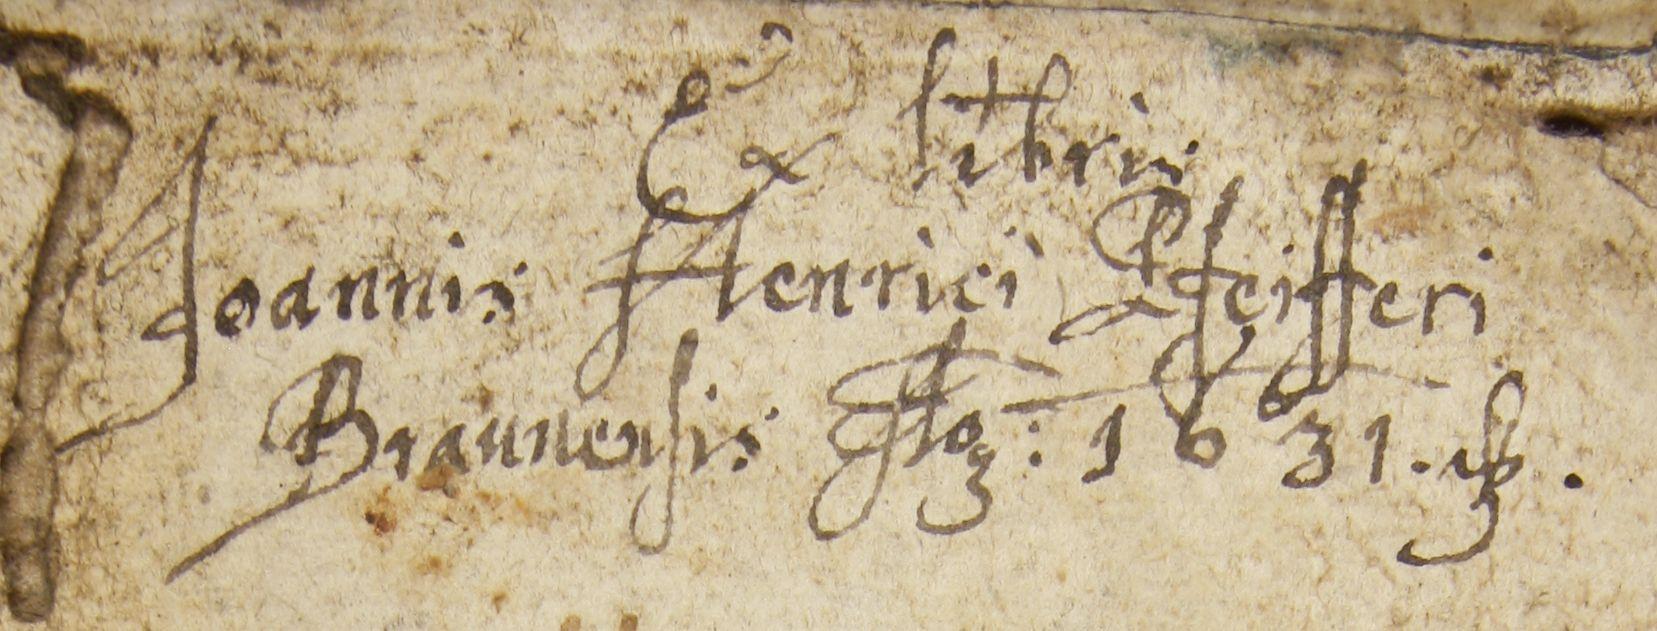 Ex libris
Joannis Henrici Pfeifferi
Braunensis 1631.